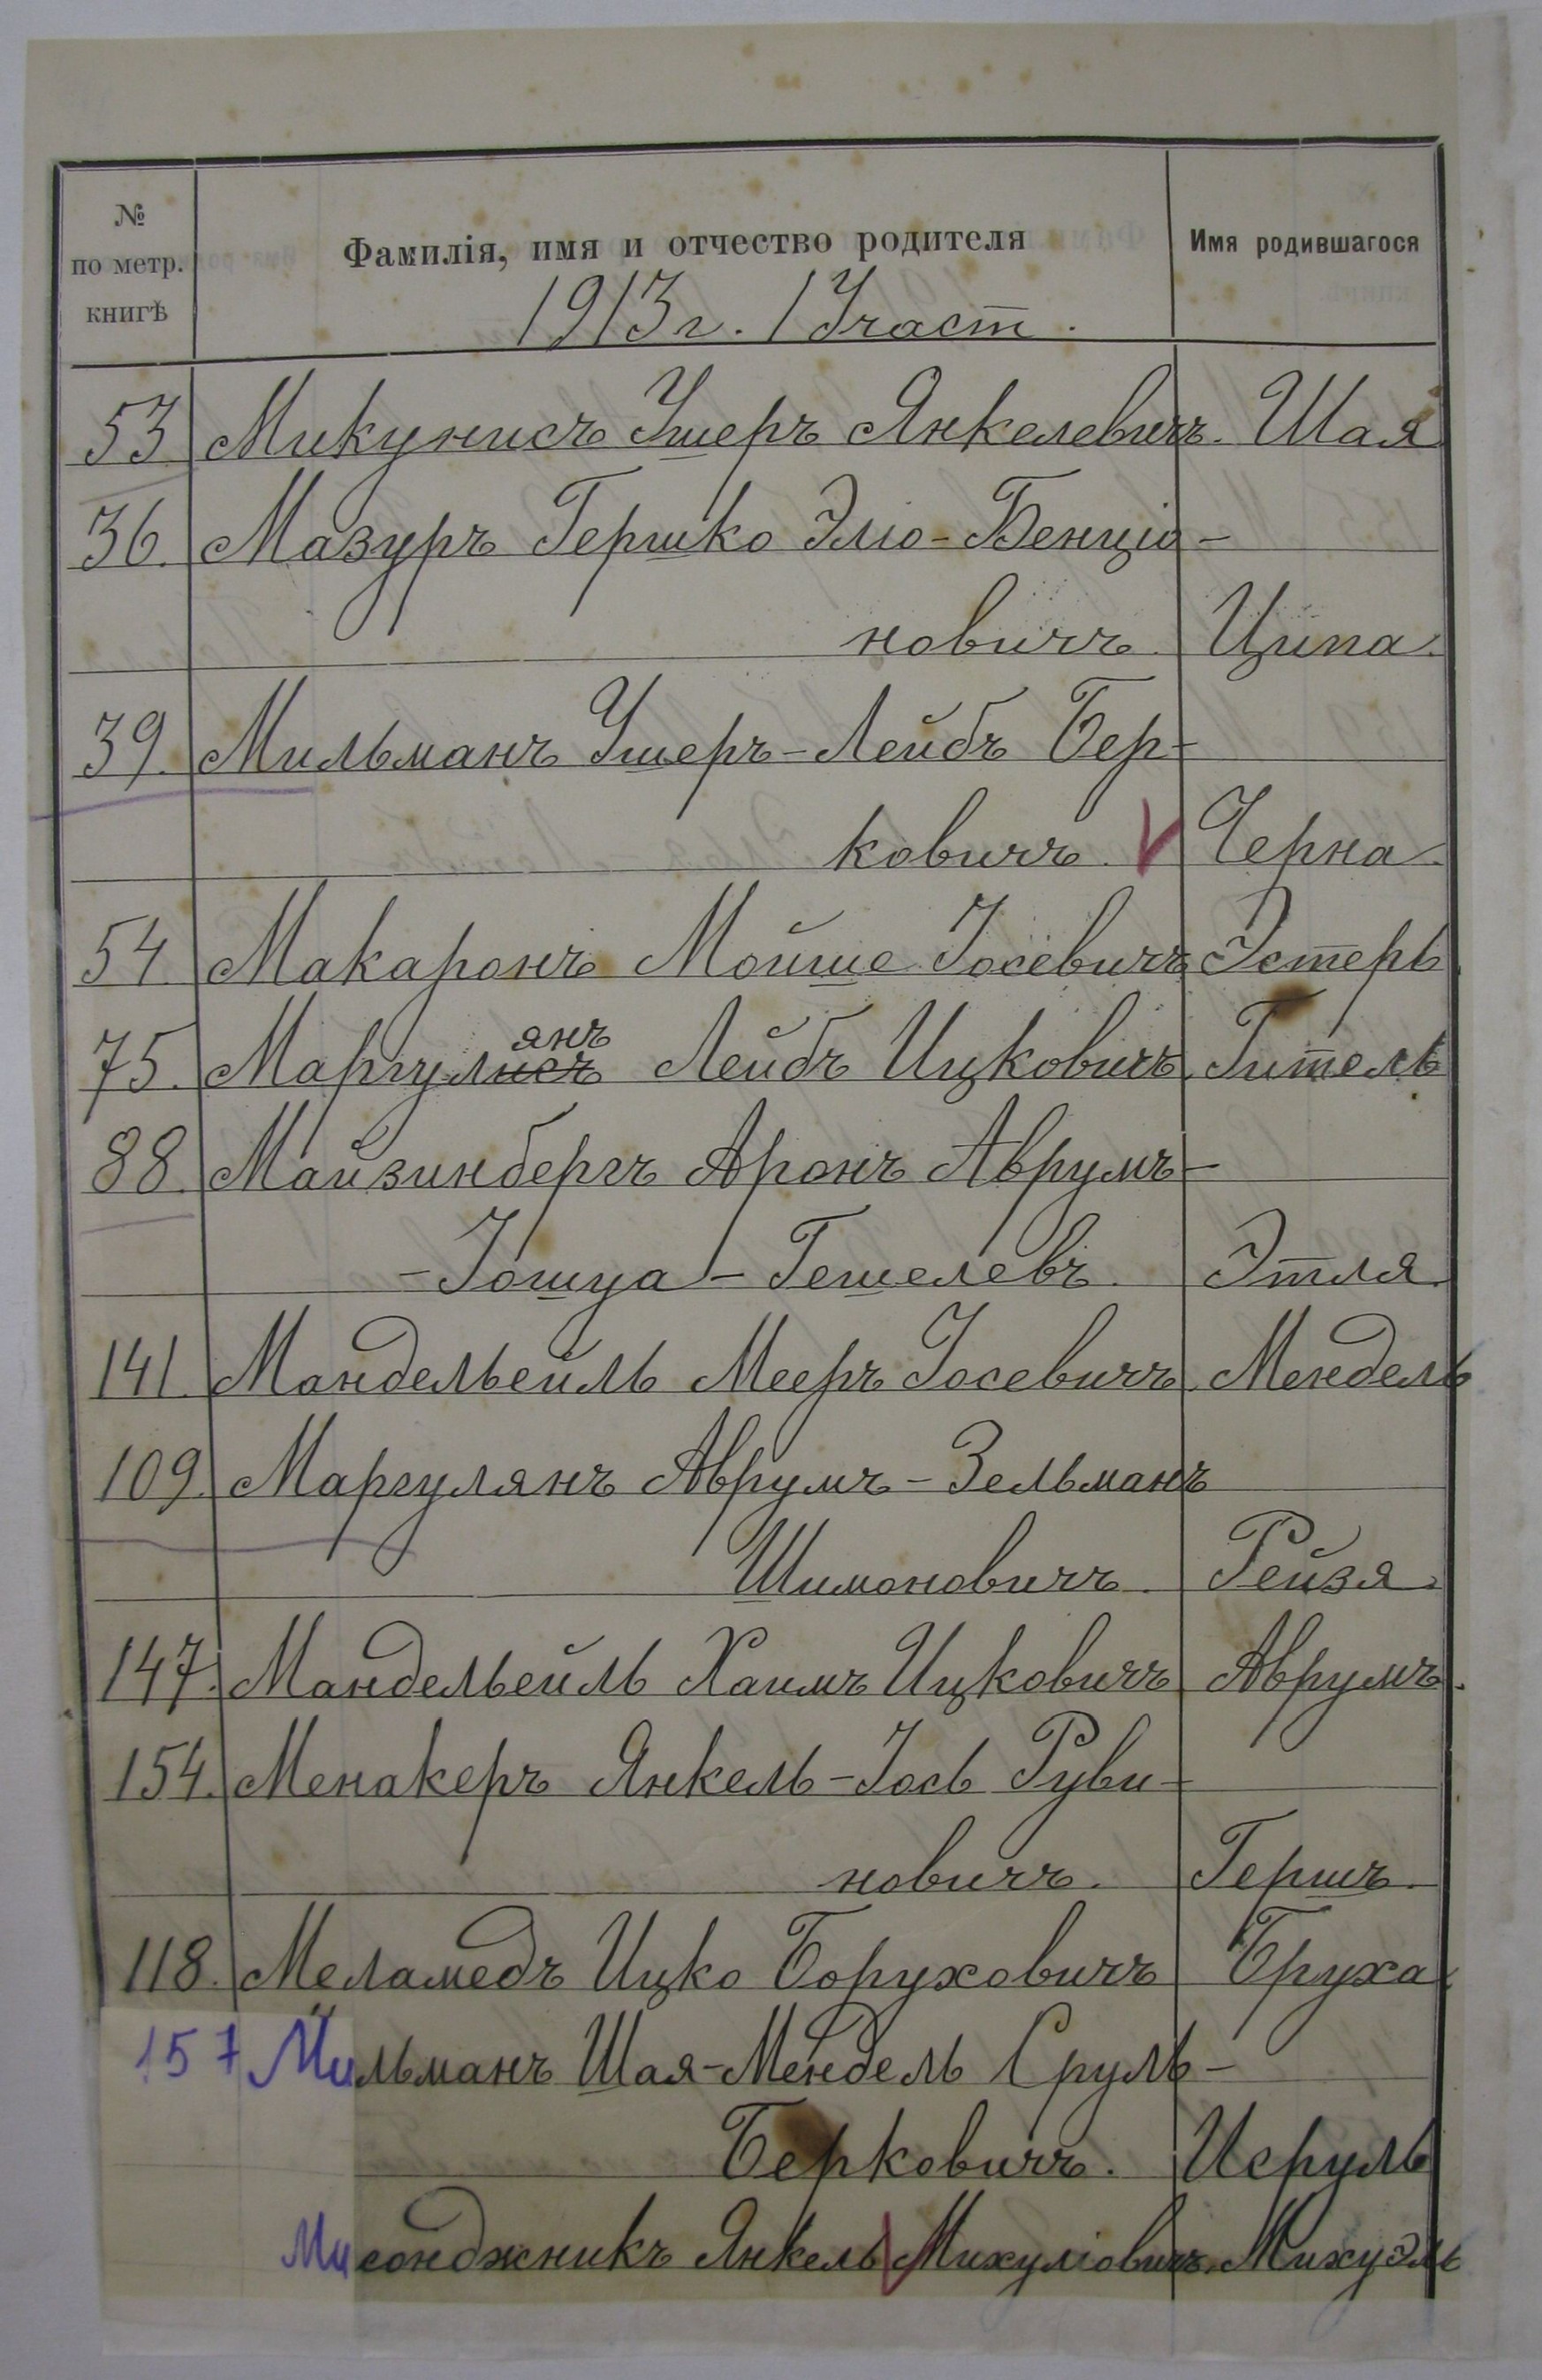 № по метр. книгѣ Фамилія, имя и отчество родителя Имя родившагося
1913 г. 1 Участ.
53 Микунисъ Ушеръ Янкелевичъ. Шая
36. Мазуръ Гершко Эліо-Бенціо-
новичъ. Ципа.
39. Мильманъ Ушеръ-Лейбъ Бер-
ковичъ. V Черна.
54 Макаронъ Мойше Іосевичъ Эстеръ
янъ
75. Маргулисъ Лейбъ Ицковичъ. Гителъ
88. Майзинбергъ Аронъ Аврумъ-
-Іошуа-Гешелевъ. Этля.
141. Мандельейль Мееръ Іосевичъ. Мендель
109. Маргулянъ Аврумъ-Зельманъ
Шимоновичъ. Рейзя.
147. Мандельейль Хаимъ Ицковичъ Аврумъ.
154. Менакеръ Янкель-Іось Руви-
новичъ. Гершъ.
118. Меламедъ Ицко Боруховичъ Бруха
157 Мильманъ Шая-Мендель Сруль-
Берковичъ. Исруль
Мисонджникъ Янкель V Михуліовичъ. Михуэль